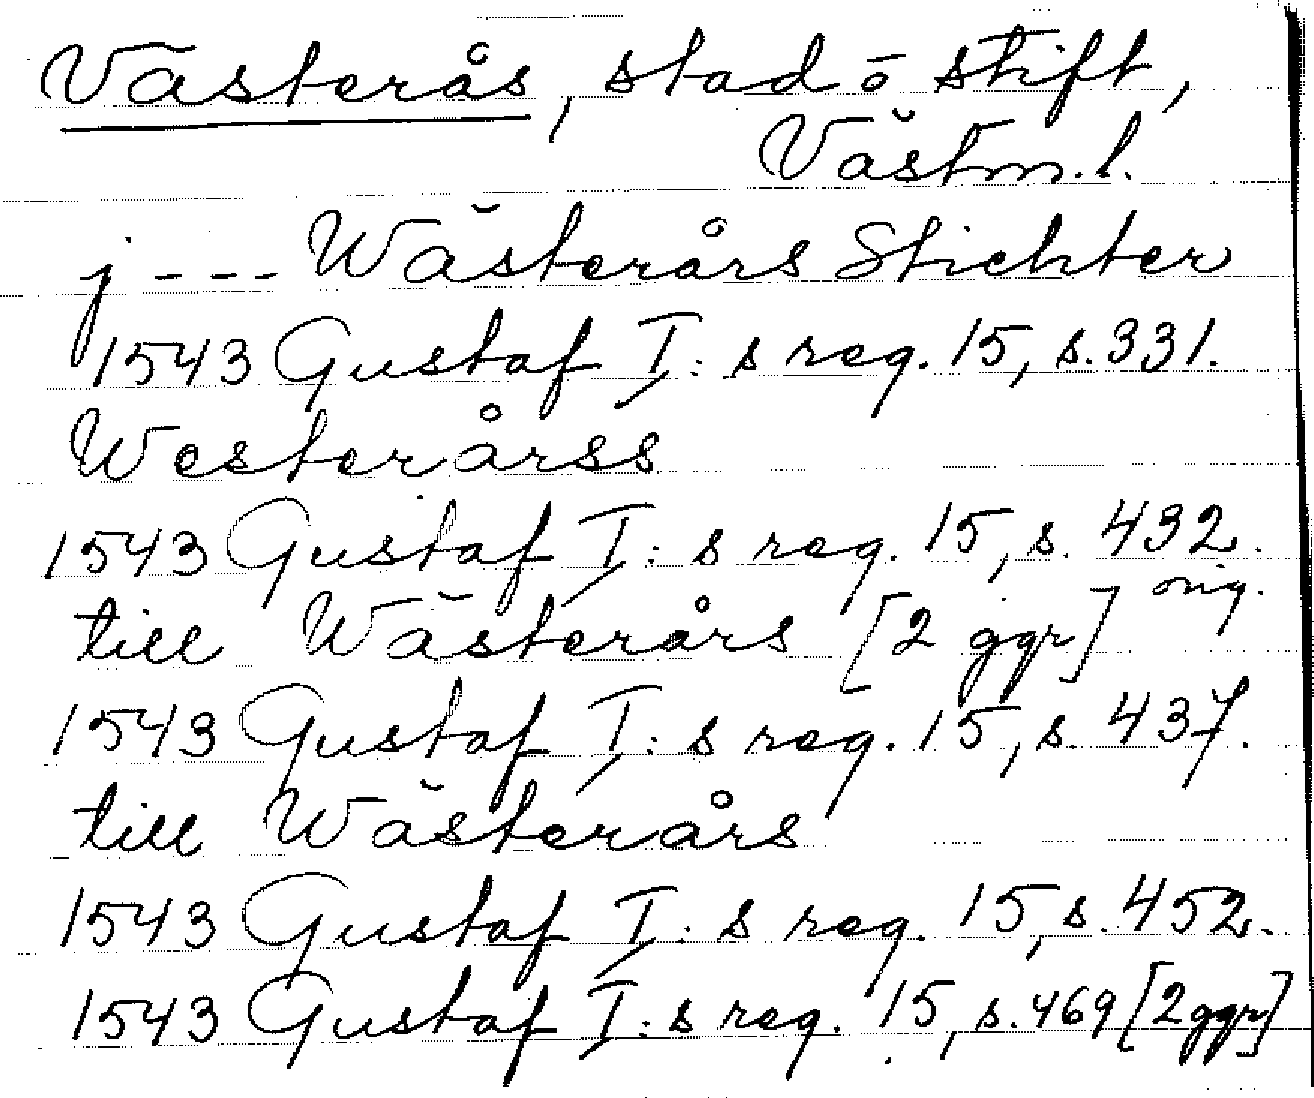 Västerås, stad o stift,
Västm.l.
j --- Wästerårs Stichter
1543 Gustaf I:s reg. 15, s. 331.
Westerårss
1543 Gustaf I:s reg. 15, s. 432.
orig.
till Wästerårs [2 ggr]
1543 Gustaf I:s reg. 15, s. 437.
till Wästerårs
1543 Gustaf I:s reg. 15, s. 452.
1543 Gustaf I:s reg. 15, s. 469 [2 ggr]